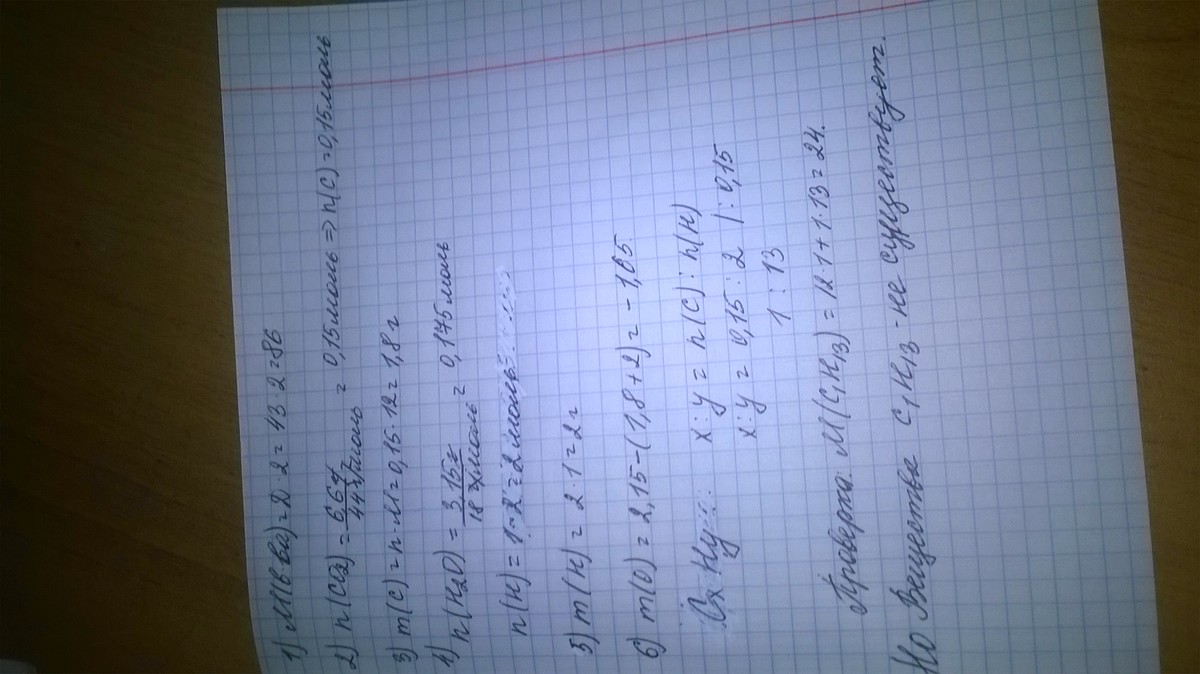 1) M(в-ва) = D · 2 = 43 · 2 = 86
2) n(CO2) = 6,6г / 44г/моль = 0,15моль => n(C) = 0,15моль
3) m(C) = n · M = 0,15 · 12 = 1,8 г
4) n(H2O) = 3,15г / 18г/моль = 0,175моль
n(H) = 1 · 2 = 2 моль
5) m(H) = 2 · 1 = 2 г
6) m(O) = 2,15 - (1,8 + 2) = - 1,65
CxHy x : y = n(C) : n(H)
x : y = 0,15 : 2 | : 0,15
1 : 13
Проверка: M(C1H13) = 12 · 1 + 1 · 13 = 24.
Но Вещества C1H13 - не существует.